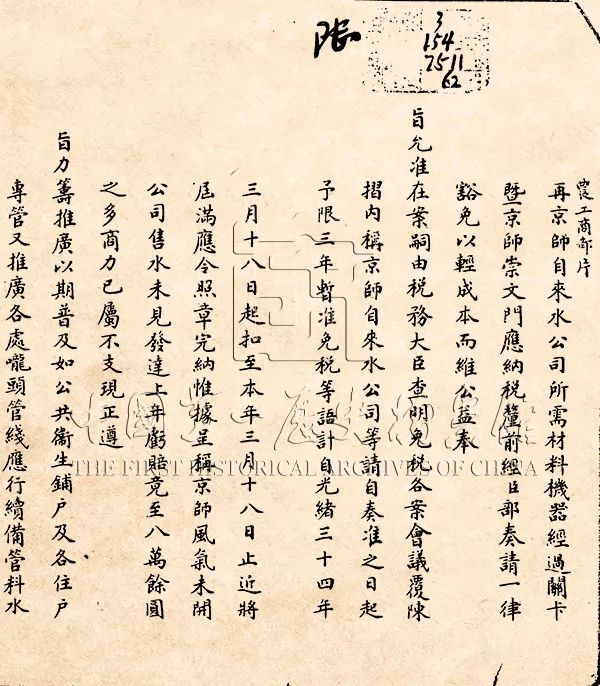 張
3
154
7511
62
農工商部片
再京師自來水公司所需材料機器經過關卡
暨京師崇文門應納稅釐前經臣部奏請一律
豁免以輕成本而維公益奉
旨允准在案嗣由稅務大臣查明免稅各案會議覆陳
摺内稱京師自來水公司等請自奏准之日起
予限三年暫准免稅等語計自光緒三十四年
三月十八日起扣至本年三月十八日止近將
屆滿應令照章完納惟據呈稱京師風氣未開
公司售水未見發達上年虧賠竟至八萬餘圓
之多商力已屬不支現正遵
旨力籌推廣以期普及如公共衞生鋪户及各住户
專管又推廣各處嚨頭管綫應行續備管料水
中國第一歷史檔案館
THE FIRST HISTORICAL ARCHIVES OF CHINA